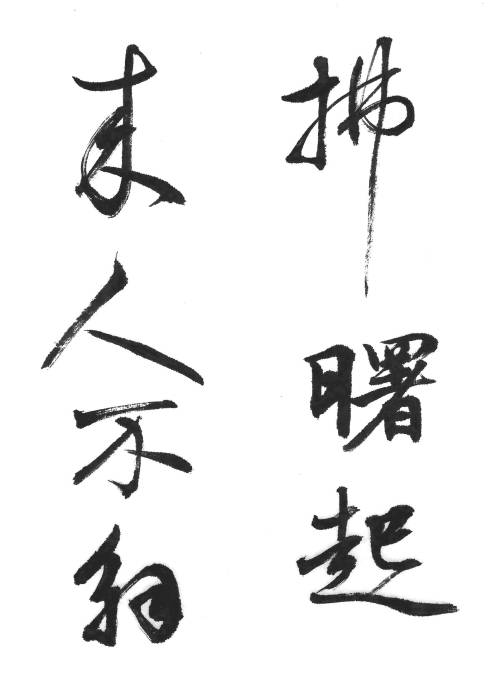 拂曙起
来人不知